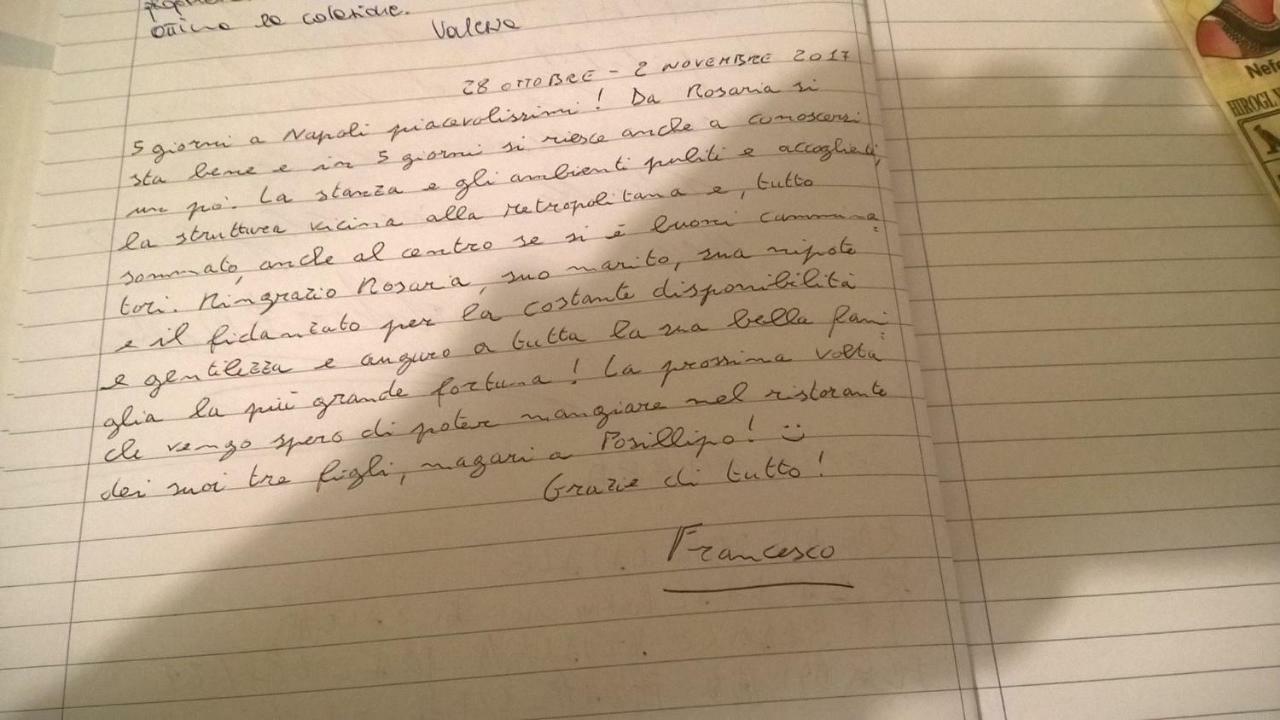 ottima la colazione.
Valeria
28 OTTOBRE - 2 NOVEMBRE 2017
5 giorni a Napoli piacevolissimi! Da Rosaria si
sta bene e in 5 giorni si riesce anche a conoscersi
un po'. La stanza e gli ambienti puliti e accoglienti,
la struttura vicina alla metropolitana e, tutto
sommato, anche al centro se si è buoni cammina
tori. Ringrazio Rosaria, suo marito, sua nipote
e il fidanzato per la costante disponibilità
e gentilezza e auguro a tutta la sua bella fami
glia la più grande fortuna! La prossima volta
che vengo spero di poter mangiare nel ristorante
dei suoi tre figli, magari a Posillipo! :)
Grazie di tutto!
Francesco
Nefe
HIROGL